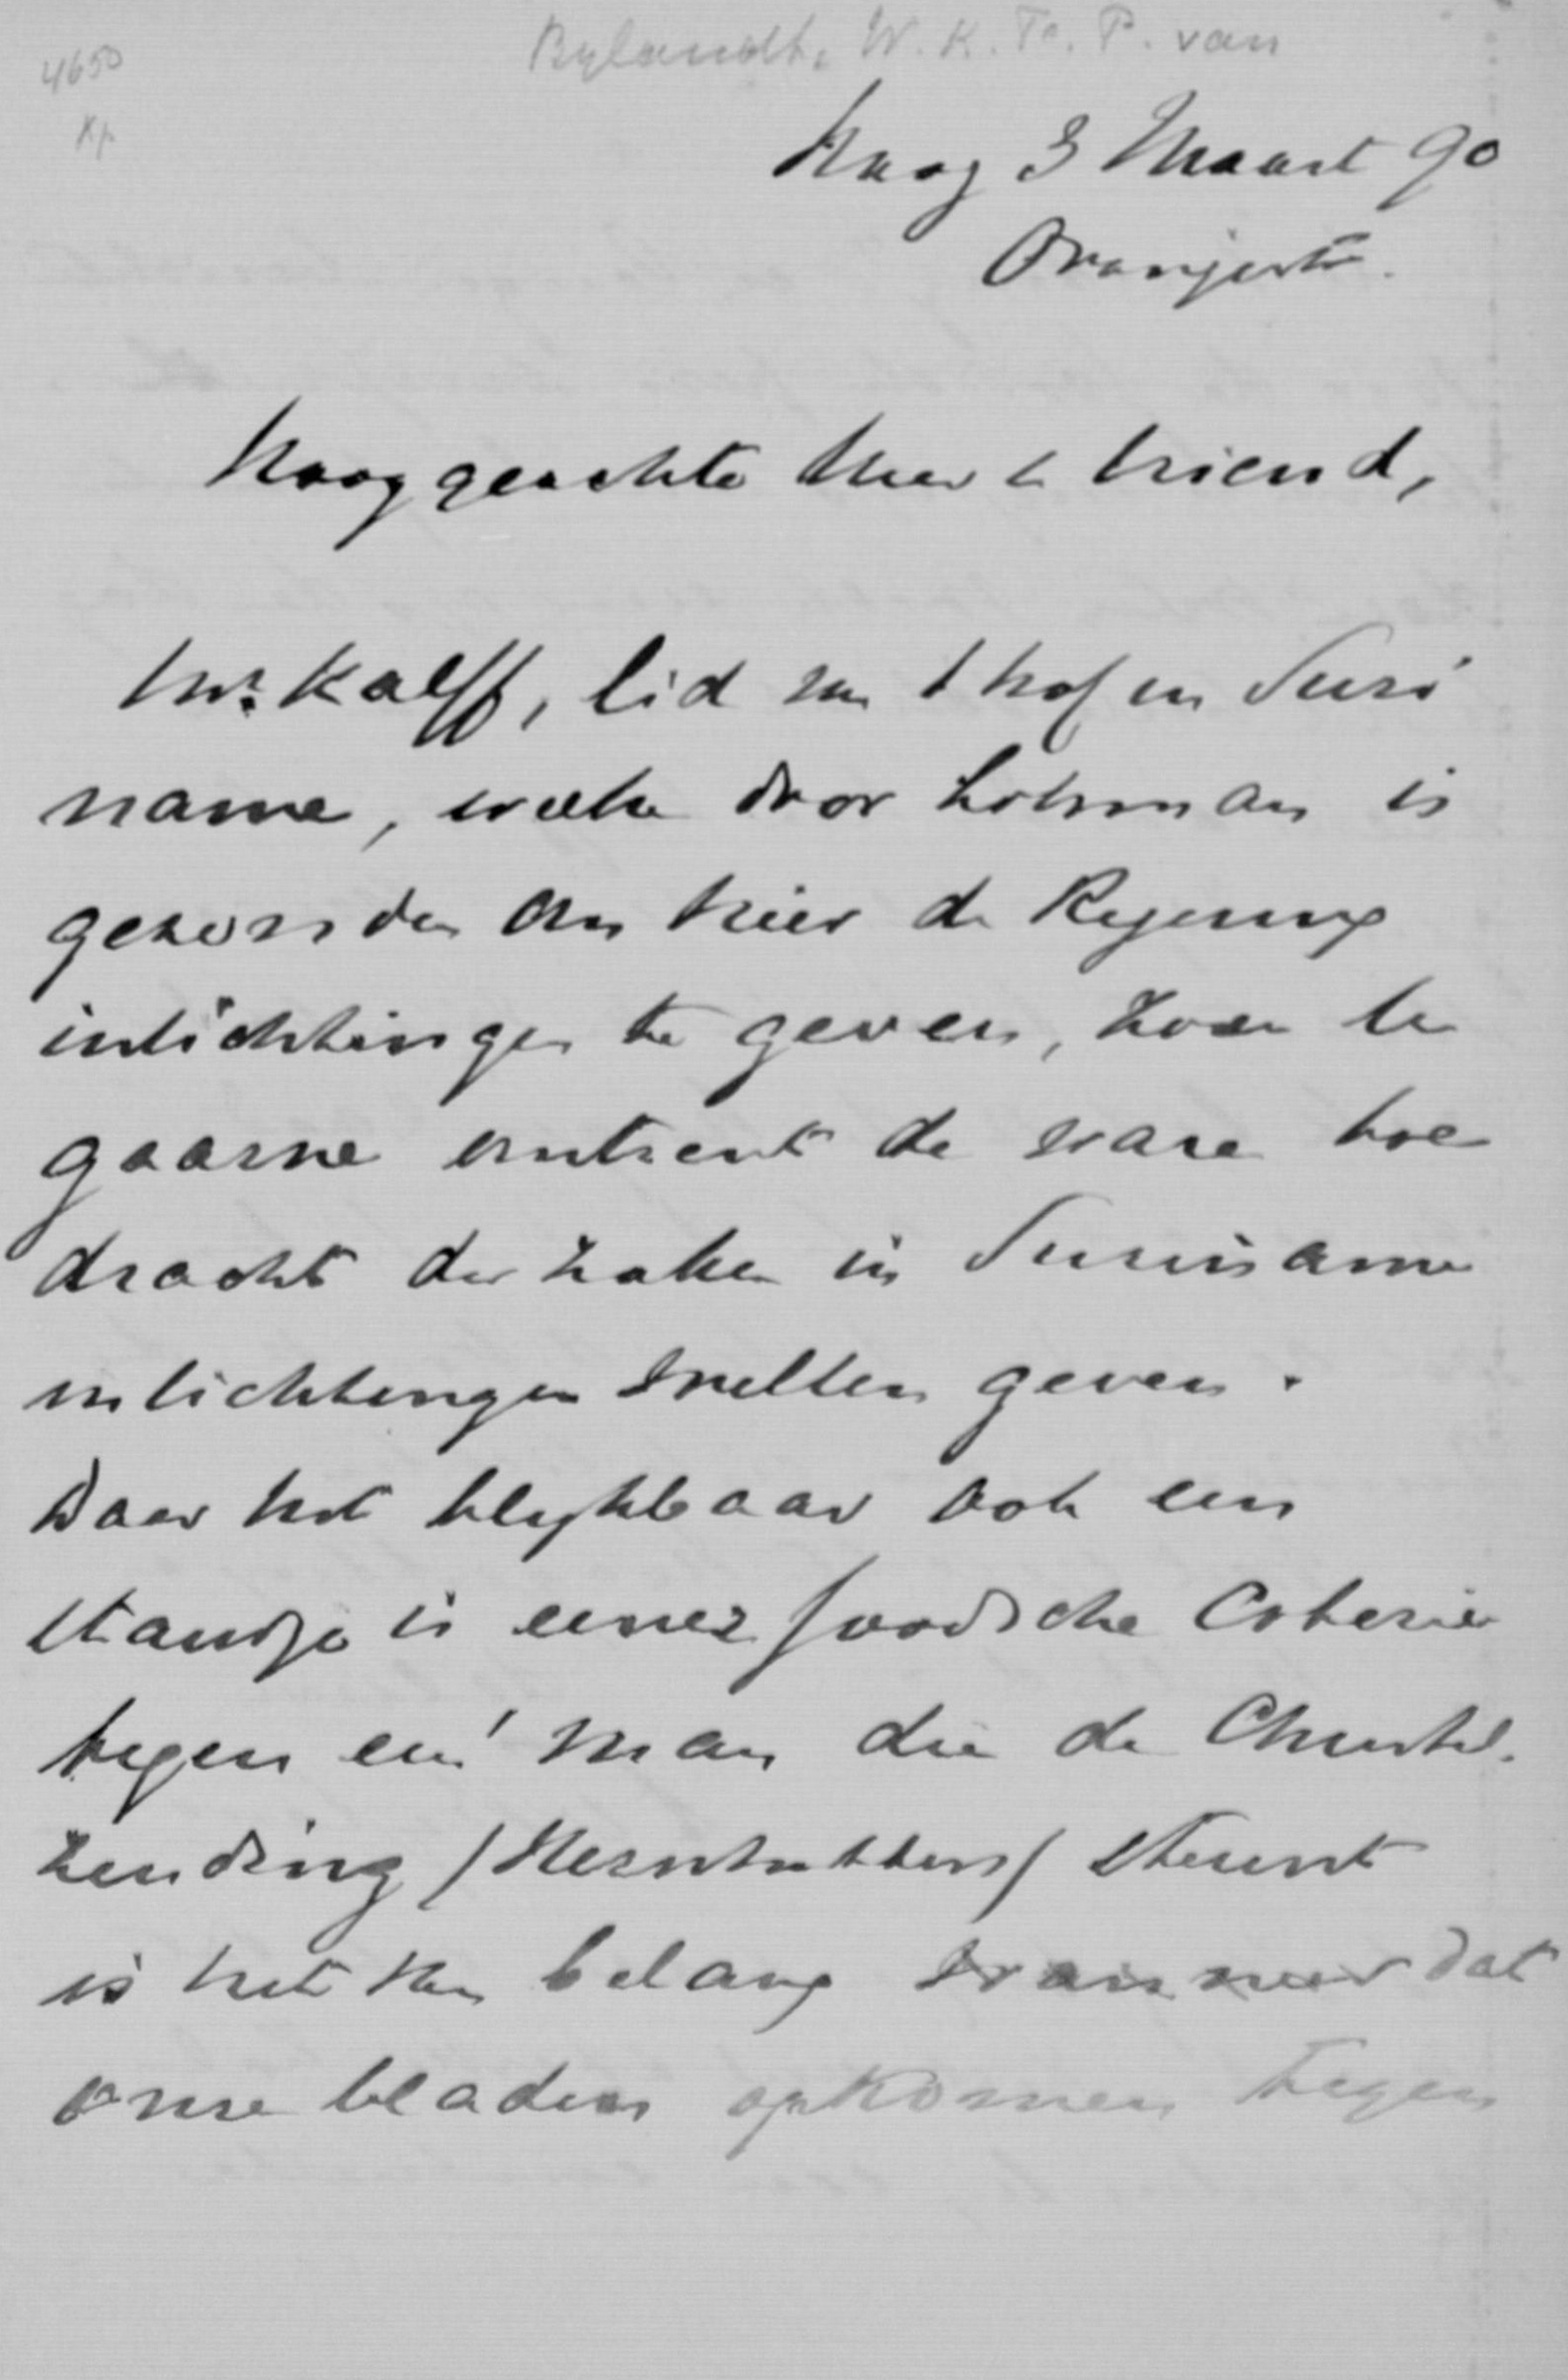 Bylandt, W. K. F. P. van
4650
Kp
Haag 3 Maart 90
Oranjestr.
Hooggeachte Heer & Vriend,
Mr. Kalff, lid van 't hof in Suri
name, welke door Lohman is
gezonden om hier de Regering
inlichtingen te geven, zou U
gaarne omtrent de ware toe
dracht der zaken in Suriname
inlichtingen willen geven.
Daar het blijkbaar ook een
standje is eener Joodsche Coterie
tegen een man die de Christel.
zending (Hernhutters) steunt
is het van belang wanneer dat
onze bladen opkomen tegen